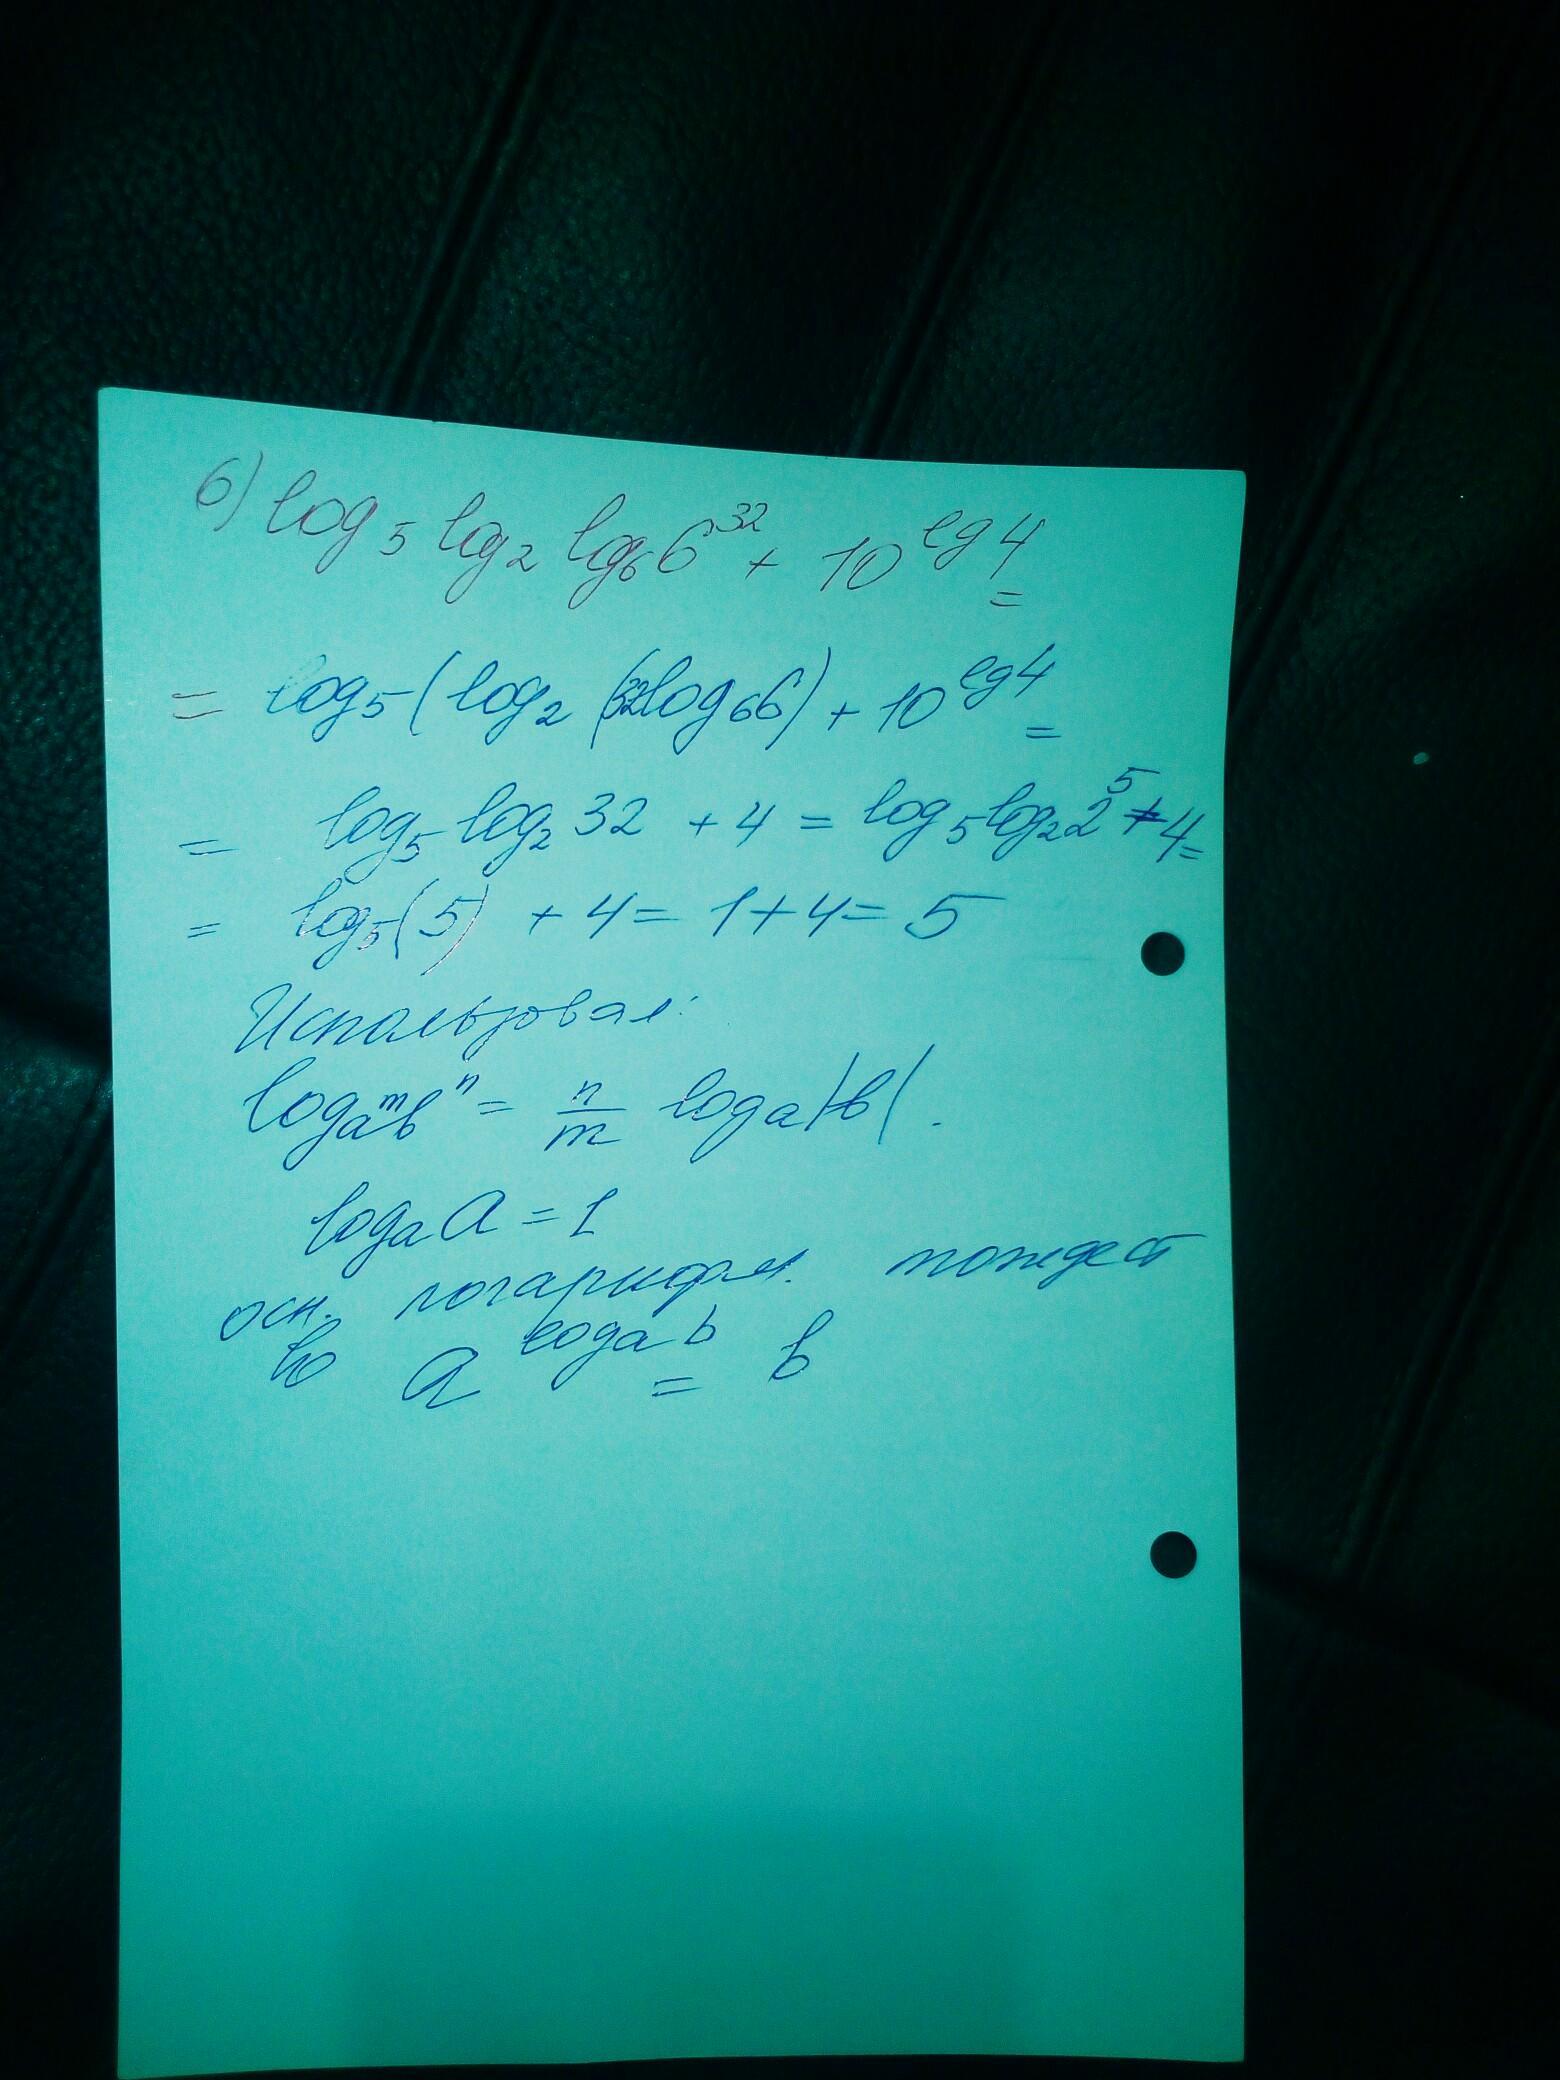 б) log₅ log₂ log₆ 6³² + 10^lg 4 =
= log₅ (log₂ (32 log₆ 6) + 10^lg 4 =
= log₅ log₂ 32 + 4 = log₅ log₂ 2⁵ + 4 =
= log₅ (5) + 4 = 1 + 4 = 5
Использовал:
log_a^m b^n = n/m log_a |b|.
log_a a = 1
осн. логарифм. тождест
во a^log_a b = b